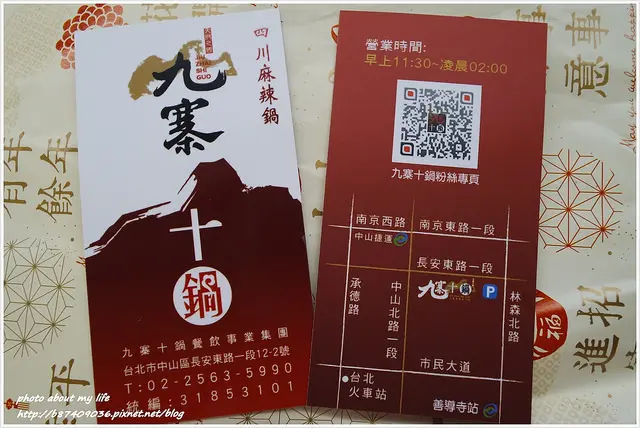 四川麻辣鍋
JIU
ZHAI
SHI
GUO
九寨
十
鍋
九寨十鍋餐飲事業集團
台北市中山區長安東路一段12-2號
T:02-2563-5990
統編:31853101
營業時間:
早上11:30~凌晨02:00
九寨十鍋粉絲專頁
南京西路
南京東路一段
中山捷運
長安東路一段
承德路
中山北路一段
九寨十鍋
P
林森北路
市民大道
台北
火車站
善導寺站
事
意
年年
有餘
招
進
福
平
photo about my life
http://b27409036.pixnet.net/blog